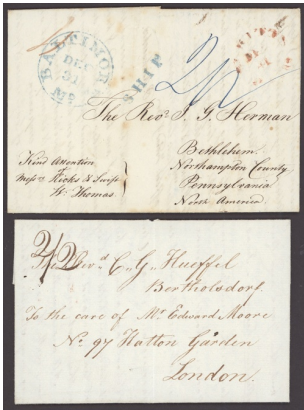 BALTIMORE
DEC
31
Md
SHIP
The Revd J. G. Herman
Bethlehem
Northampton County
Pennsylvania
North America
Kind Attention
of
Messrs
W. Thomas
2/2
C. G. Hueffel
Bertholsdorf
To the care of Mr Edward Moore
No 97 Hatton Garden
London.